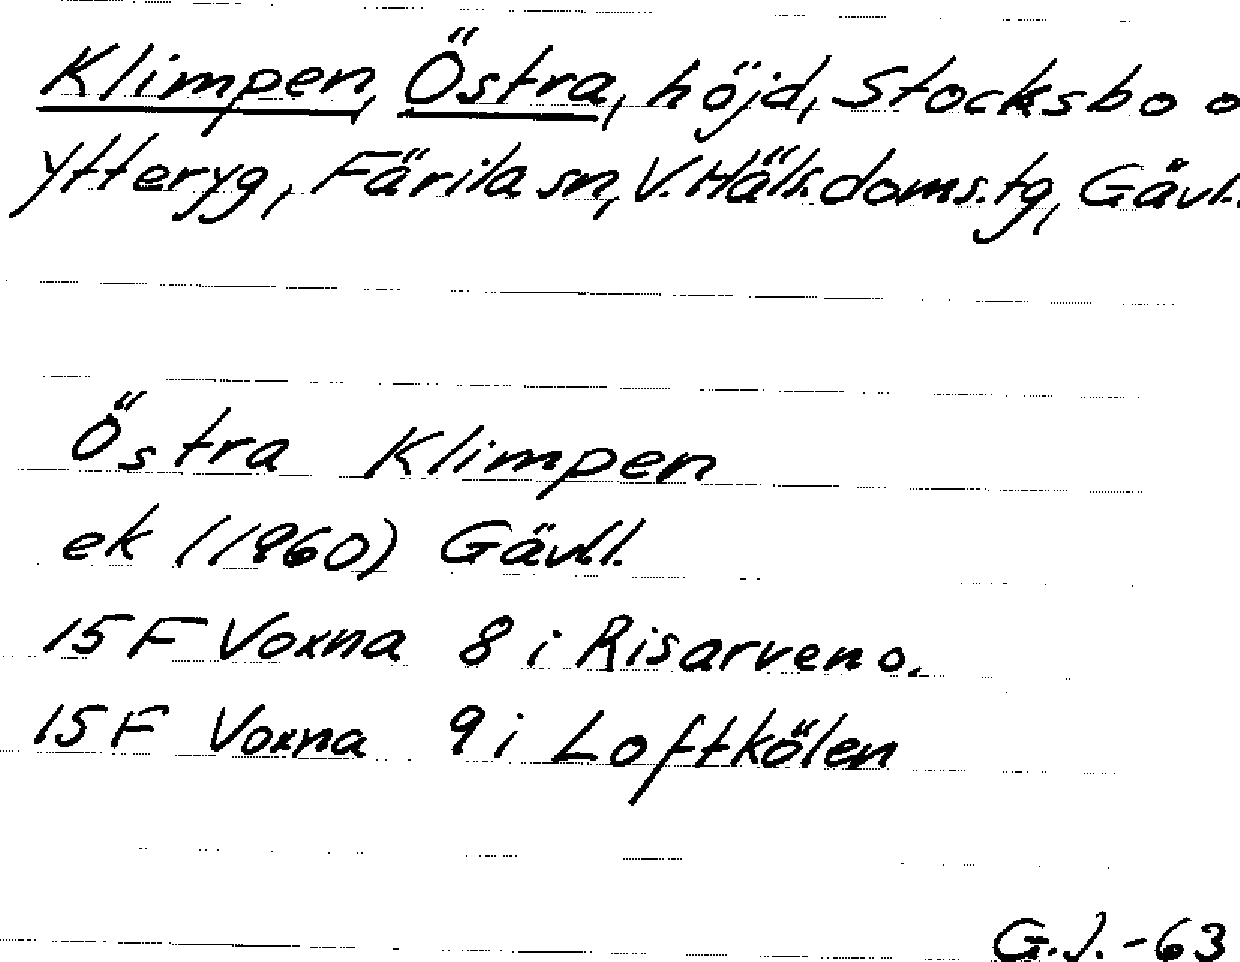 Klimpen, Östra, höjd, Stocksbo o
Ytteryg, Färila sn, V. Häls. doms. tg, Gävl.
Östra Klimpen
ek (1960) Gävl.l.
15 F Voxna 8 i Risarven o.
15 F Voxna 9 i Loftkölen
G.J. -63